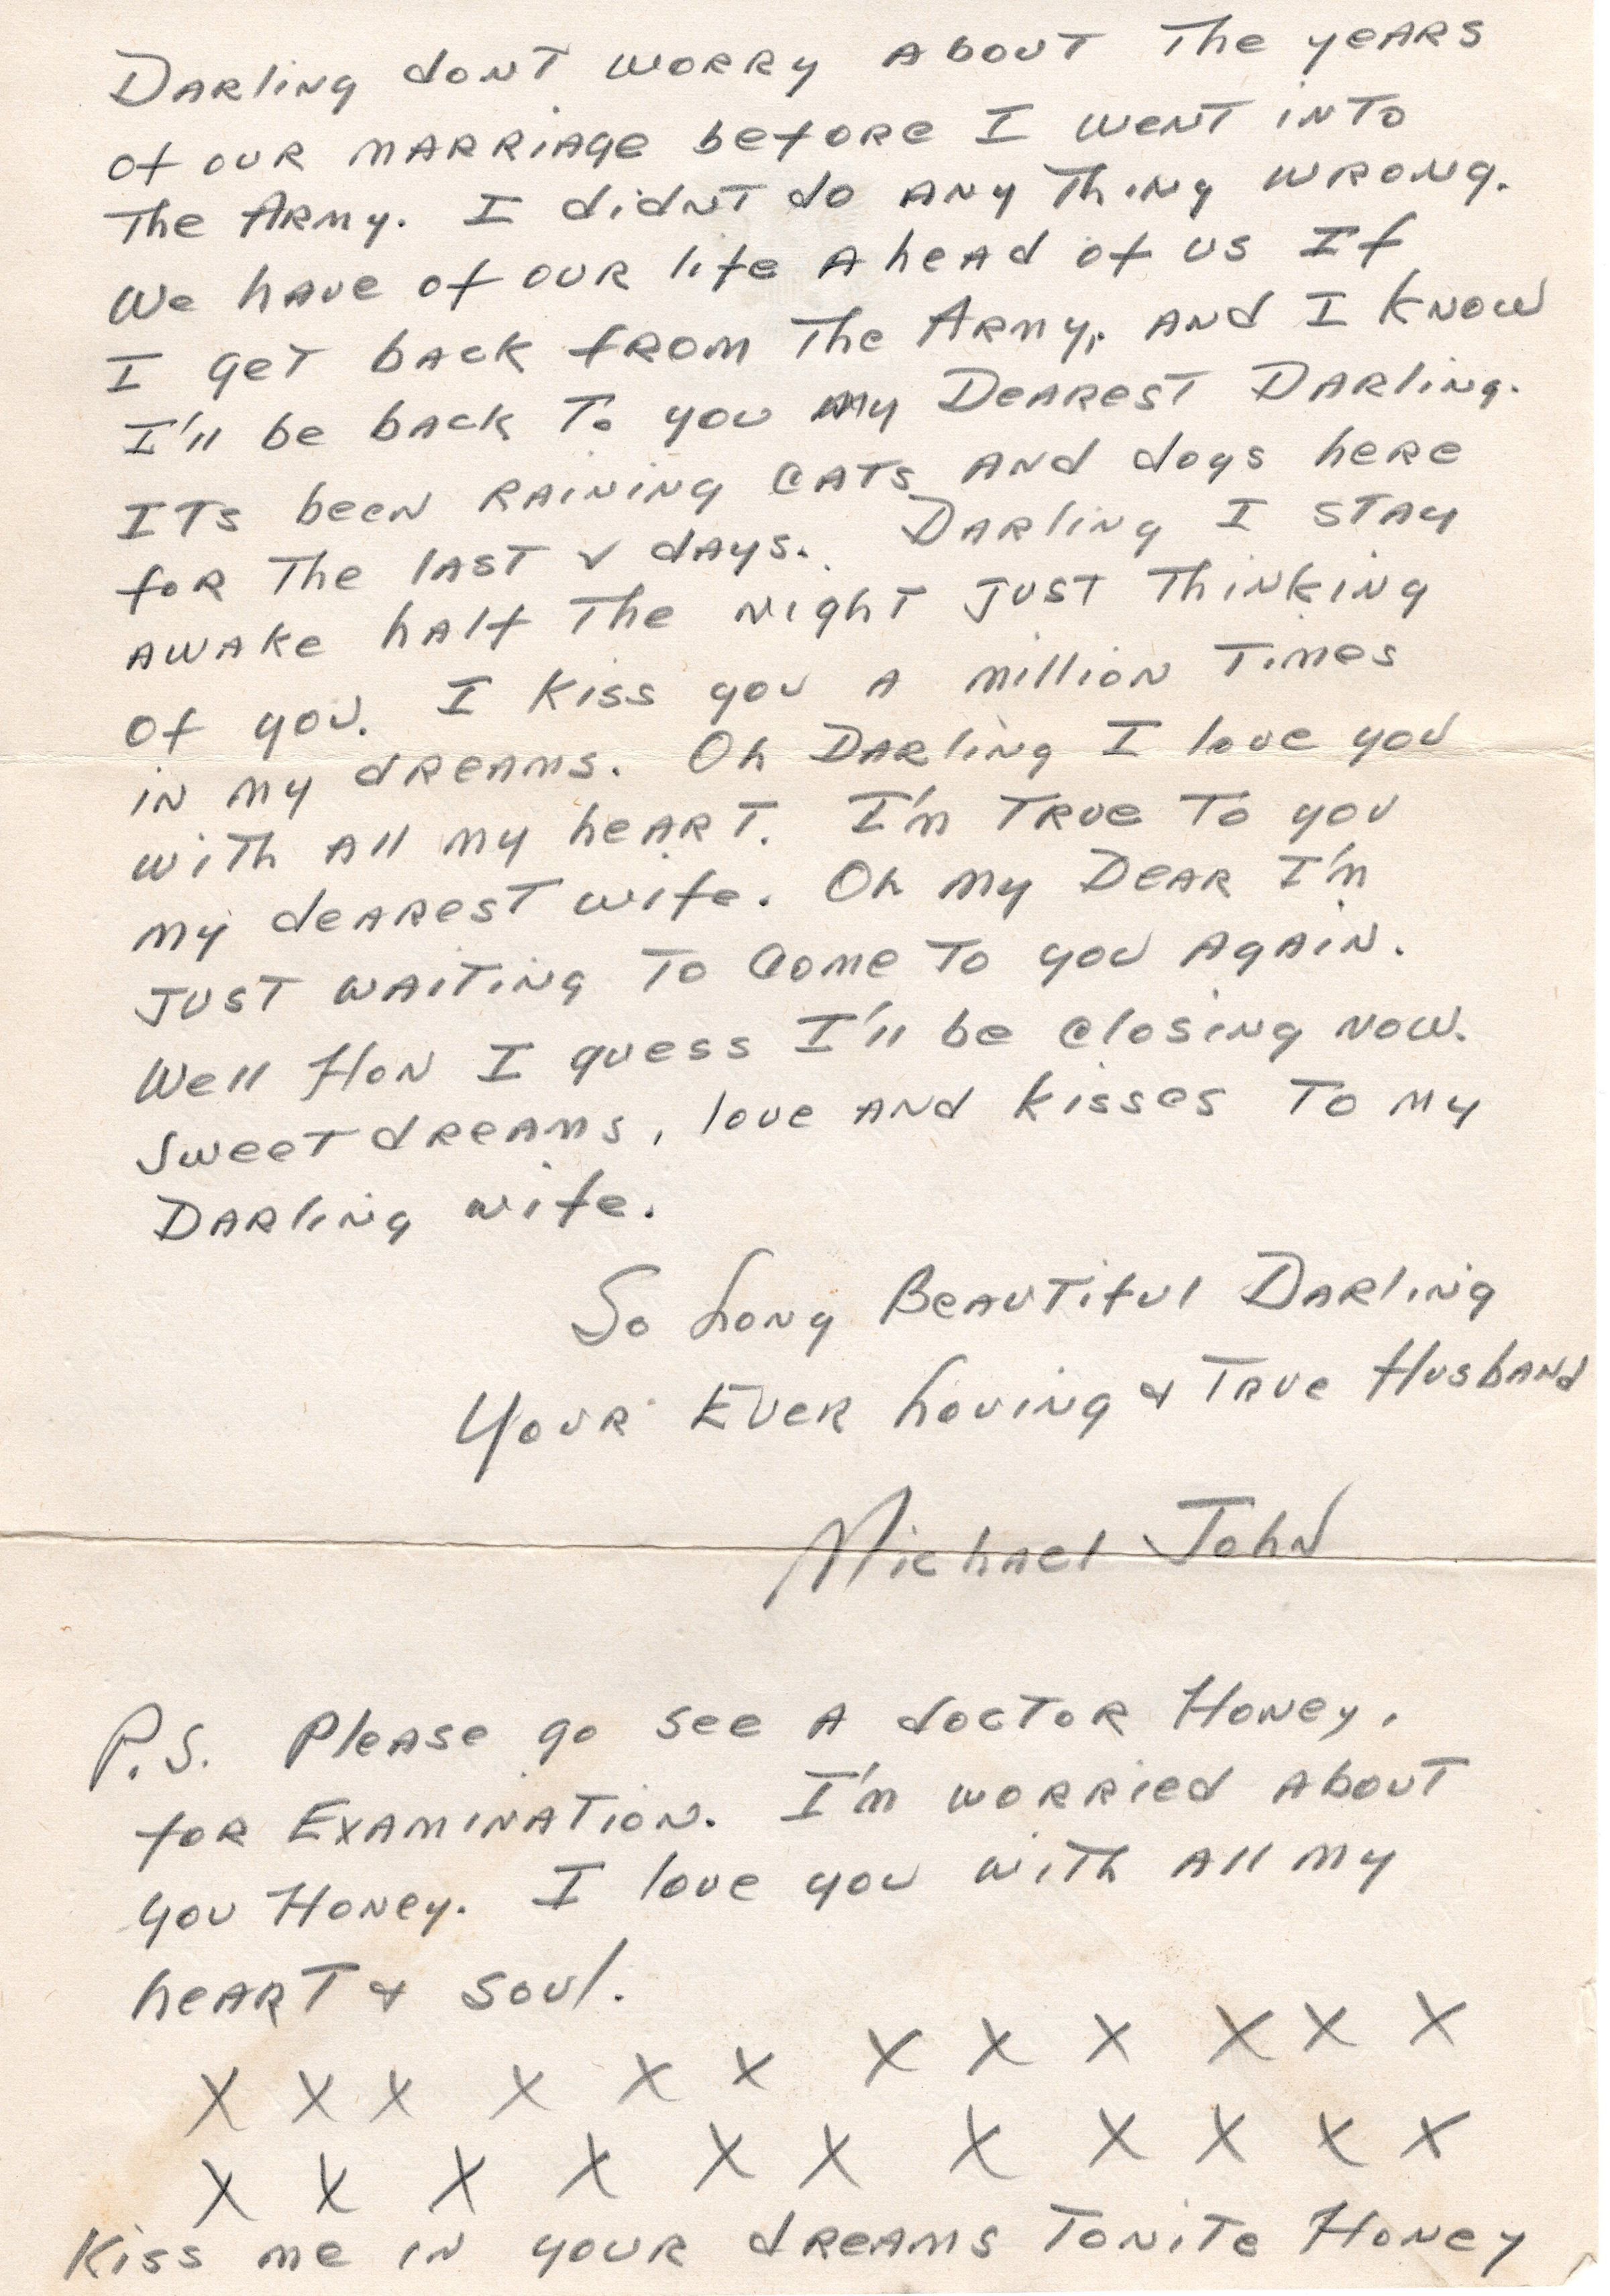 Darling dont worry about the years
of our marriage before I went into
the Army. I didnt do any thing wrong.
We have of our life ahead of us If
I get back from the Army, and I know
I'll be back to you my Dearest Darling.
ITs been raining cats and dogs here
for the last 2 days. Darling I stay
awake half the night just thinking
of you. I kiss you a million times
in my dreams. Oh Darling I love you
with all my heart. I'm true to you
my dearest wife. Oh my Dear I'm
just waiting to come to you again.
Well Hon I guess I'll be closing now.
Sweet dreams, love and kisses to my
Darling wife.
So Long Beautiful Darling
Your Ever Loving & True Husband
Michael John
P.S. Please go see a doctor Honey,
for Examination. I'm worried about
you Honey. I love you with all my
heart & soul.
X X X X X X X X X X X X
X X X X X X X X X X X
Kiss me in your dreams tonite Honey